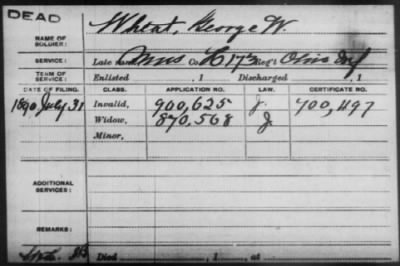 DEAD
NAME OF SOLDIER: Wheat, George W.
SERVICE: Late rank, Co. H 173 Reg't Ohio Inf
TERM OF SERVICE: Enlisted , 1 Discharged , 1
DATE OF FILING. CLASS. APPLICATION NO. LAW. CERTIFICATE NO.
1890 July 31 Invalid, 900,625 J. 700,497
Widow, 870,568 J
Minor,
ADDITIONAL SERVICES:
REMARKS:
Died , 1 , at